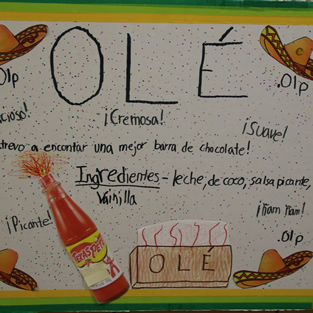 OLÉ
.01p
.01p
¡Cremosa!
¡Suave!
a encontar una mejor barra de chocolate!
Ingredientes - leche, de coco, salsa picante,
Vainilla
¡Picante!
¡Ñam Ñam!
.01p
OLÉ